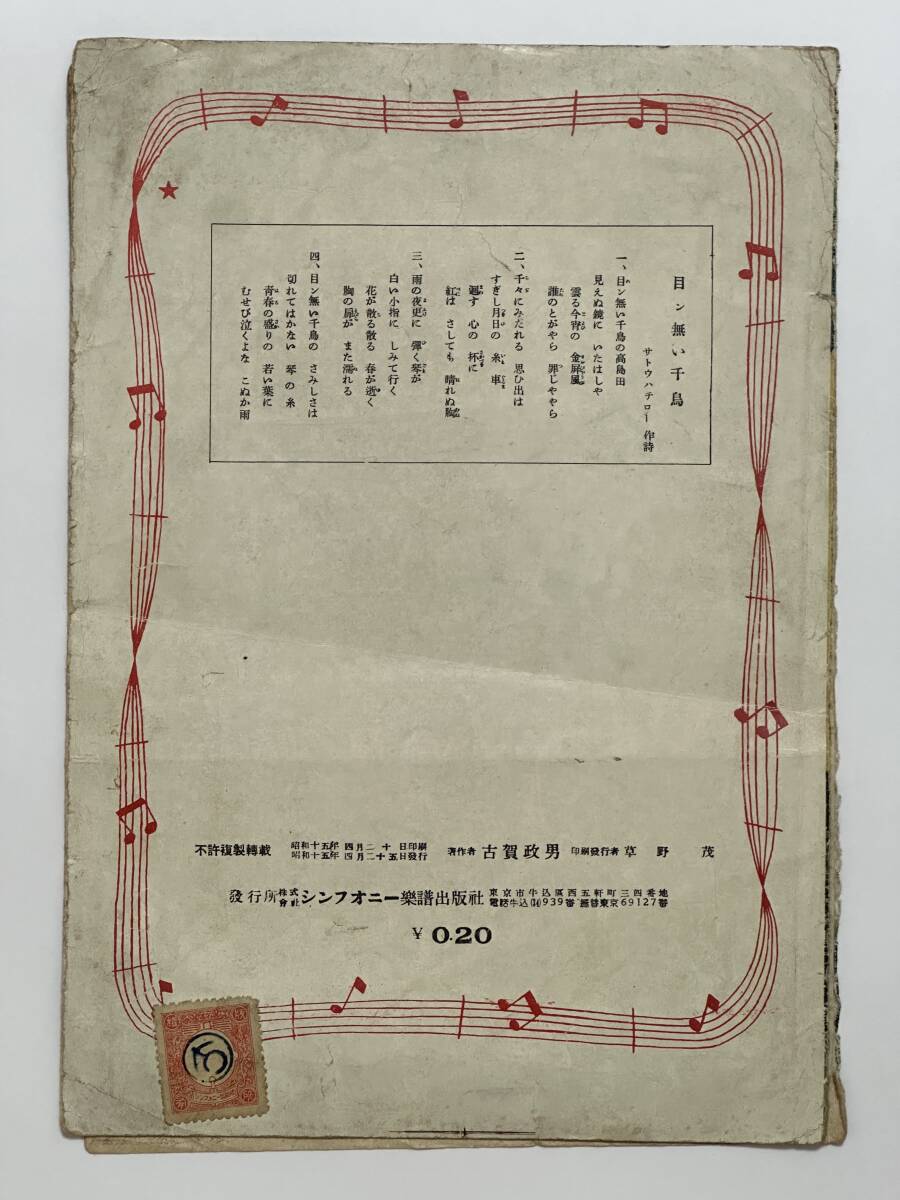 目ン無い千鳥
サトウハチロー 作詩
一、目ン無い千鳥の高島田
見えぬ鏡に いたはしや
曇る今宵の 金屏風
誰のとがやら 罪じややら
二、千々にみだれる 思ひ出は
すぎし月日の 糸車
廻す 心の 杯に
紅は さしても 晴れぬ胸
三、雨の夜更に 彈く琴が
白い小指に しみて行く
花が散る散る 春が逝く
胸の扉が また濡れる
四、目ン無い千鳥の さみしさは
切れてはかない 琴の糸
青春の盛りの 若い葉に
むせび泣くよな こぬか雨
不許複製轉載
昭和十五年 四月二十日印刷
昭和十五年 四月二十五日發行
著作者 古賀政男 印刷發行者 草野 茂
發行所 株式會社 シンフオニー樂譜出版社
東京市牛込區西五軒町三四番地
電話牛込(34)939番 振替東京69127番
¥ 0.20